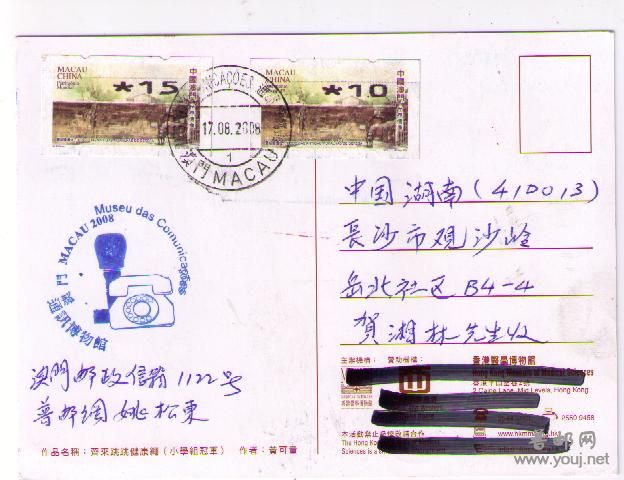 MACAU
CHINA
*15
中國澳門
MACAU
CHINA
*10
中國澳門
17.08.2008
1
澳門 MACAU
Museu das Comunicações
澳門 MACAU 2008
通訊博物館
中国湖南(410013)
長沙市观沙岭
岳北社区 B4-4
賀湘林先生收
澳門郵政信箱1122号
普邮網 姚松東
主辦機構： 贊助機構：
香港醫學博物館
Hong Kong Museum of Medical Sciences
香港半山堅巷2號
2 Caine Lane, Mid Levels, Hong Kong
2559 9458
本活動禁止
The Hong Kong
Sciences is a
作品名稱：齊來跳跳健康繩（小學組冠軍） 作者：黃可童
www.youj.net